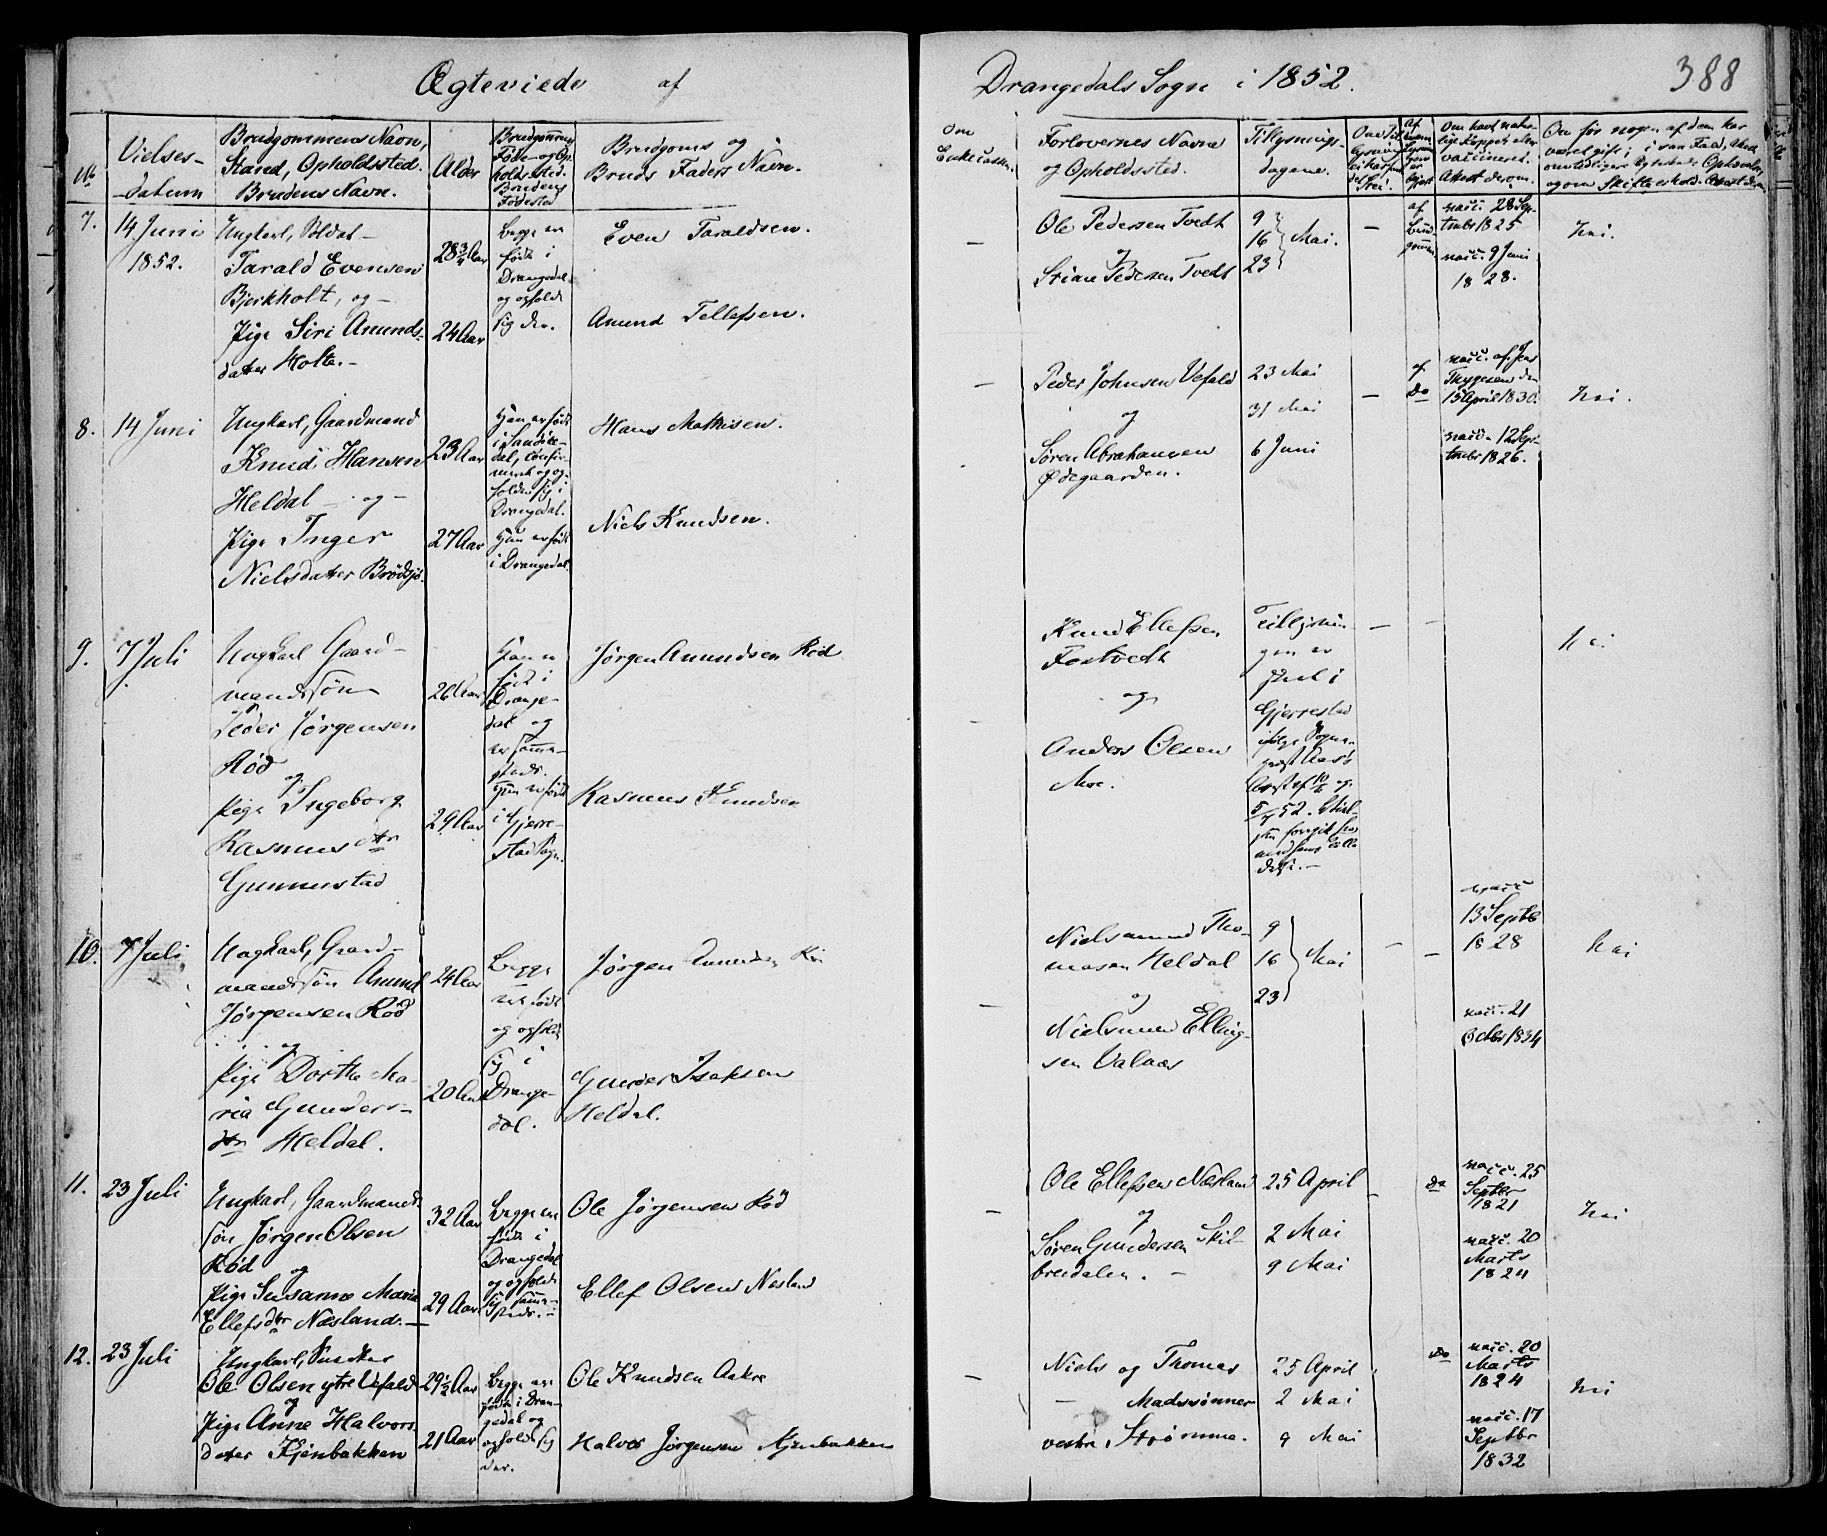 Ægteviede af
Drangedals Sogn i 1852.
388
No
Vielses-
datum
Brudgommens Navn,
Stand, Opholdssted.
Brudens Navn.
Alder
Brudgommens
Føde- og Op-
holdssted.
Brudens
Fødested
Brudgoms og
Bruds Faders Navn.
Om
Enkecasse.
Forlovernes Navne
og Opholdssted.
Tillysnings-
dagene.
7.
14 Juni
1852.
Ungkarl, Soldat-
Tarald Evensen
Bjerkholt, og-
Pige Siri Amunds-
dater Holte.-
28 3/4 Aar
24 Aar
Begge ere
fødte i
Drangedal
og opholde
sig der.
Even Taraldsen.
Amund Tellefsen.
Ole Pedersen Tvedt
og
Stian Pedersen Tvedt
9
16 Mai.
23
af
Brud-
gommen
vacc. 28 Sep-
tembr 1825
vacc. 9 Juni
1828.
Nei.
8.
14 Juni
Ungkarl, Gaardmand
Knud Hansen
Heldal - og -
Pige Inger
Nielsdatter Brødsjø.
23 Aar
27 Aar
Han er født
i Sandøke-
dal, confir-
meret og op-
holder sig i
Drangedal.
Hun er født
i Drangedal.
Hans Mathisen.
Niels Knudsen.
Peder Johnsen Vefald
og
Søren Abrahamsen
Ødegaarden.
23 Mai
31 Mai
6 Juni
af
do
vacc. af Jens
Thygesen den
15 April 1830.
vacc. 12 Sep-
tembr 1826.
Nei.
9.
7 Juli
Ungkarl Gaard-
mandssøn
Peder Jørgensen
Rød
og
Pige Ingeborg
Rasmusdtr
Gunnerstad
26 Aar
29 Aar
Han er
født i
Drange-
dal og
er samme-
steds.
Hun er født
i Gjerre-
stad Sogn.
Jørgen Amundsen Rød
Rasmus Knudsen
Knud Ellefsen
Fostvedt
og
Anders Olsen
Moe.
Tillysnin-
gen er
skeet i
Gjerrestad
ifølge Sogne-
5/7 52.
Nei.
10.
7 Juli
Ungkarl, Gaard-
mandssøn Amund
Jørgensen Rød
og
Pige Dorthe Ma-
ria Gunders-
dtr Heldal.
24 Aar
20 Aar
Begge
ere fødte
og opholde
sig i
Drange-
dal.
Jørgen Amundsen
Gunder Isaksen
Heldal.
Nielsamund Tho-
masen Heldal
og
Nielsmun Elling-
sen Valaas
9
16 Mai
23
vacc
13 Septb
1828
vacc. 21
Octbr 1834
Nei
11.
23 Juli
Ungkarl, Gaardmands-
søn Jørgen Olsen
Rød
og
Pige Susanne Maria
Ellefsdtr Næsland.-
32 Aar
29 Aar
Begge ere
fødte i
Drangedal
og opholde
sig samme-
steds.-
Ole Jørgensen Rød
Ellef Olsen Nesland
Ole Ellefsen Næsland
og
Søren Gundersen Skil-
bredalen. -
25 April
2 Mai
9 Mai
do
vacc. 25
Septbr
1821
vacc. 20
Marts
1824
Nei
12.
23 Juli
Ungkarl, Snedker
Ole Olsen ytre Vefald
og
Pige Anne Halvors
dater Kjenbakken
29 1/2 Aar
21 Aar
Begge ere
fødte i Dran-
gedal og
opholde sig
der.
Ole Knudsen Aakre
Halvor Jørgensen Kjenbakken
Niels og Thomas
Madssønner
vestre Strømme.
25 April
2 Mai
9 Mai
do
vacc. 20
Marts
1824
vacc. 17
Septbr
1832
Nei